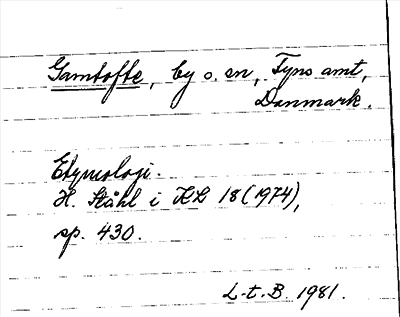 Gamtofte, by o. sn, Fyns amt,
Danmark.
Etymologi.
H. Ståhl i KL 18 (1974),
sp. 430.
L-t.B. 1981.